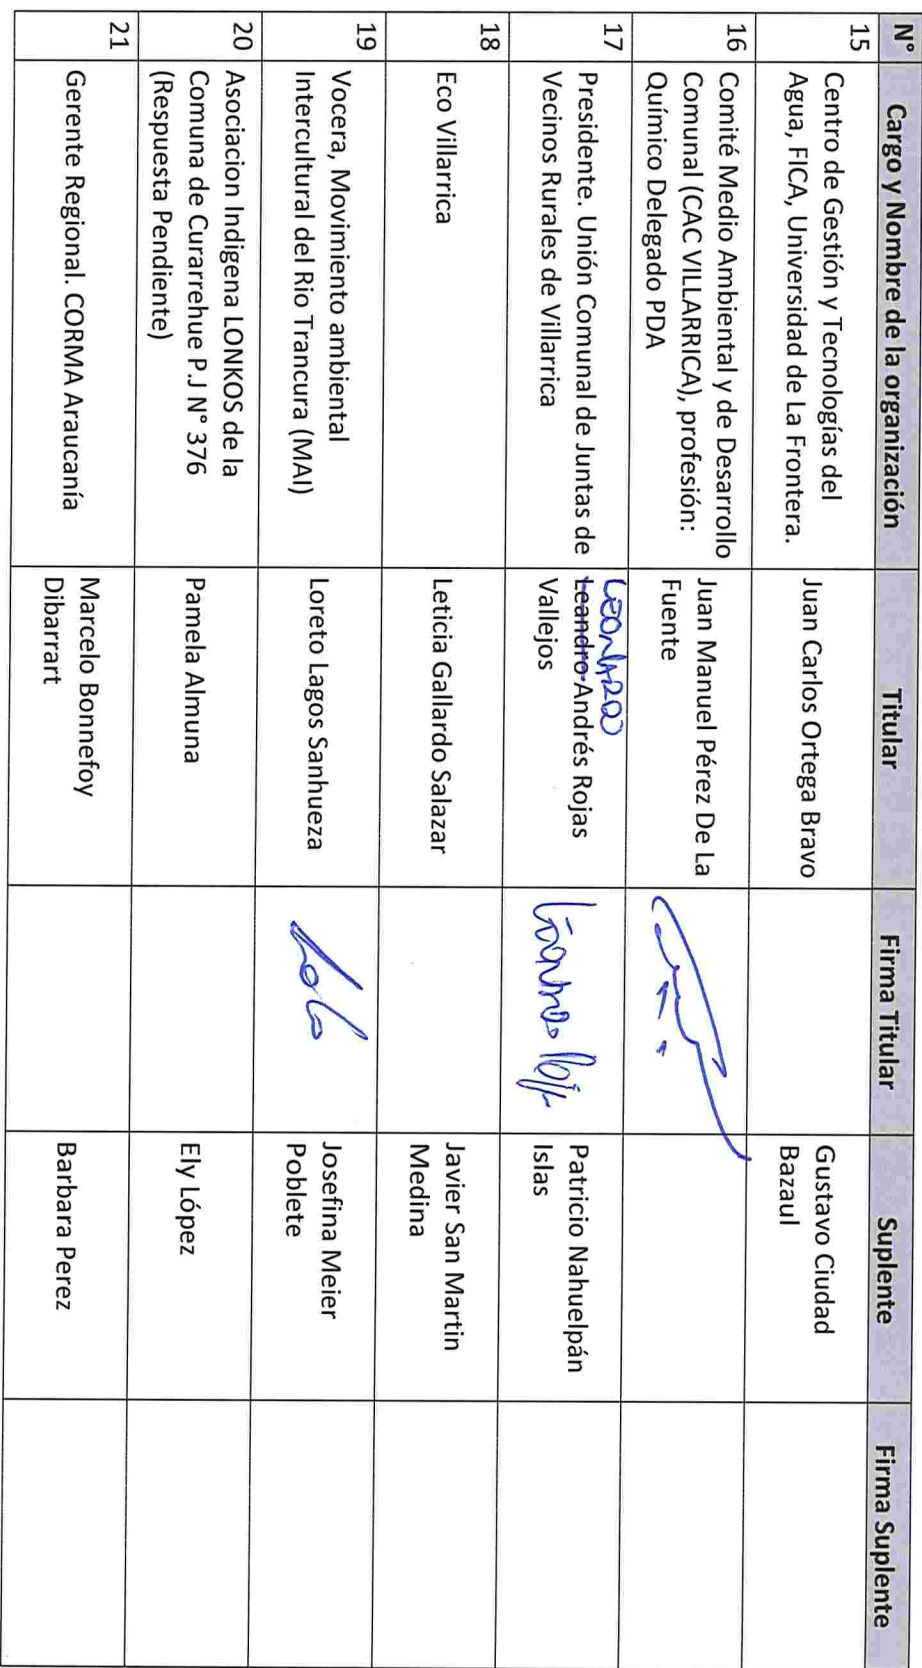 N° Cargo y Nombre de la organización Titular Firma Titular Suplente Firma Suplente
15 Centro de Gestión y Tecnologías del
Agua, FICA, Universidad de La Frontera.
Juan Carlos Ortega Bravo
Gustavo Ciudad
Bazaul
16 Comité Medio Ambiental y de Desarrollo
Comunal (CAC VILLARRICA), profesión:
Químico Delegado PDA
Juan Manuel Pérez De La
Fuente
17 Presidente. Unión Comunal de Juntas de
Vecinos Rurales de Villarrica
Leonardo
Leandro Andrés Rojas
Vallejos
Patricio Nahuelpán
Islas
18 Eco Villarrica
Leticia Gallardo Salazar
Javier San Martin
Medina
19 Vocera, Movimiento ambiental
Intercultural del Rio Trancura (MAI)
Loreto Lagos Sanhueza
Josefina Meier
Poblete
20 Asociacion Indigena LONKOS de la
Comuna de Curarrehue P.J N° 376
(Respuesta Pendiente)
Pamela Almuna
Ely López
21 Gerente Regional. CORMA Araucanía
Marcelo Bonnefoy
Dibarrart
Barbara Perez